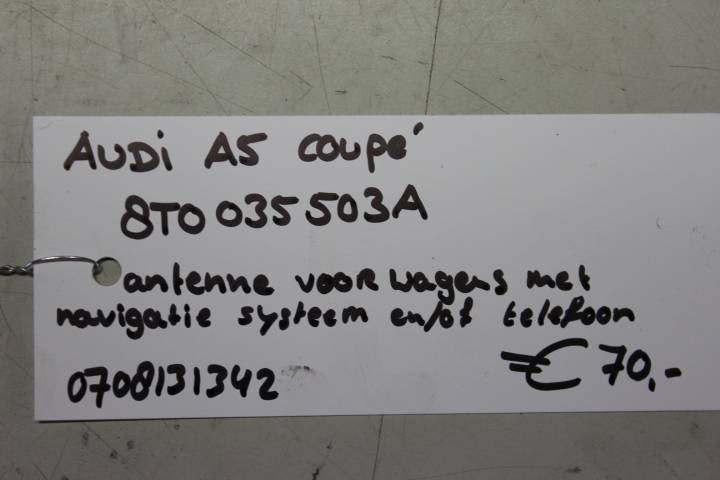 AUDi A5 coupé
8T0 035 503A
antenne voor wagens met
navigatie systeem en/of telefoon
0708131342
€ 70,-